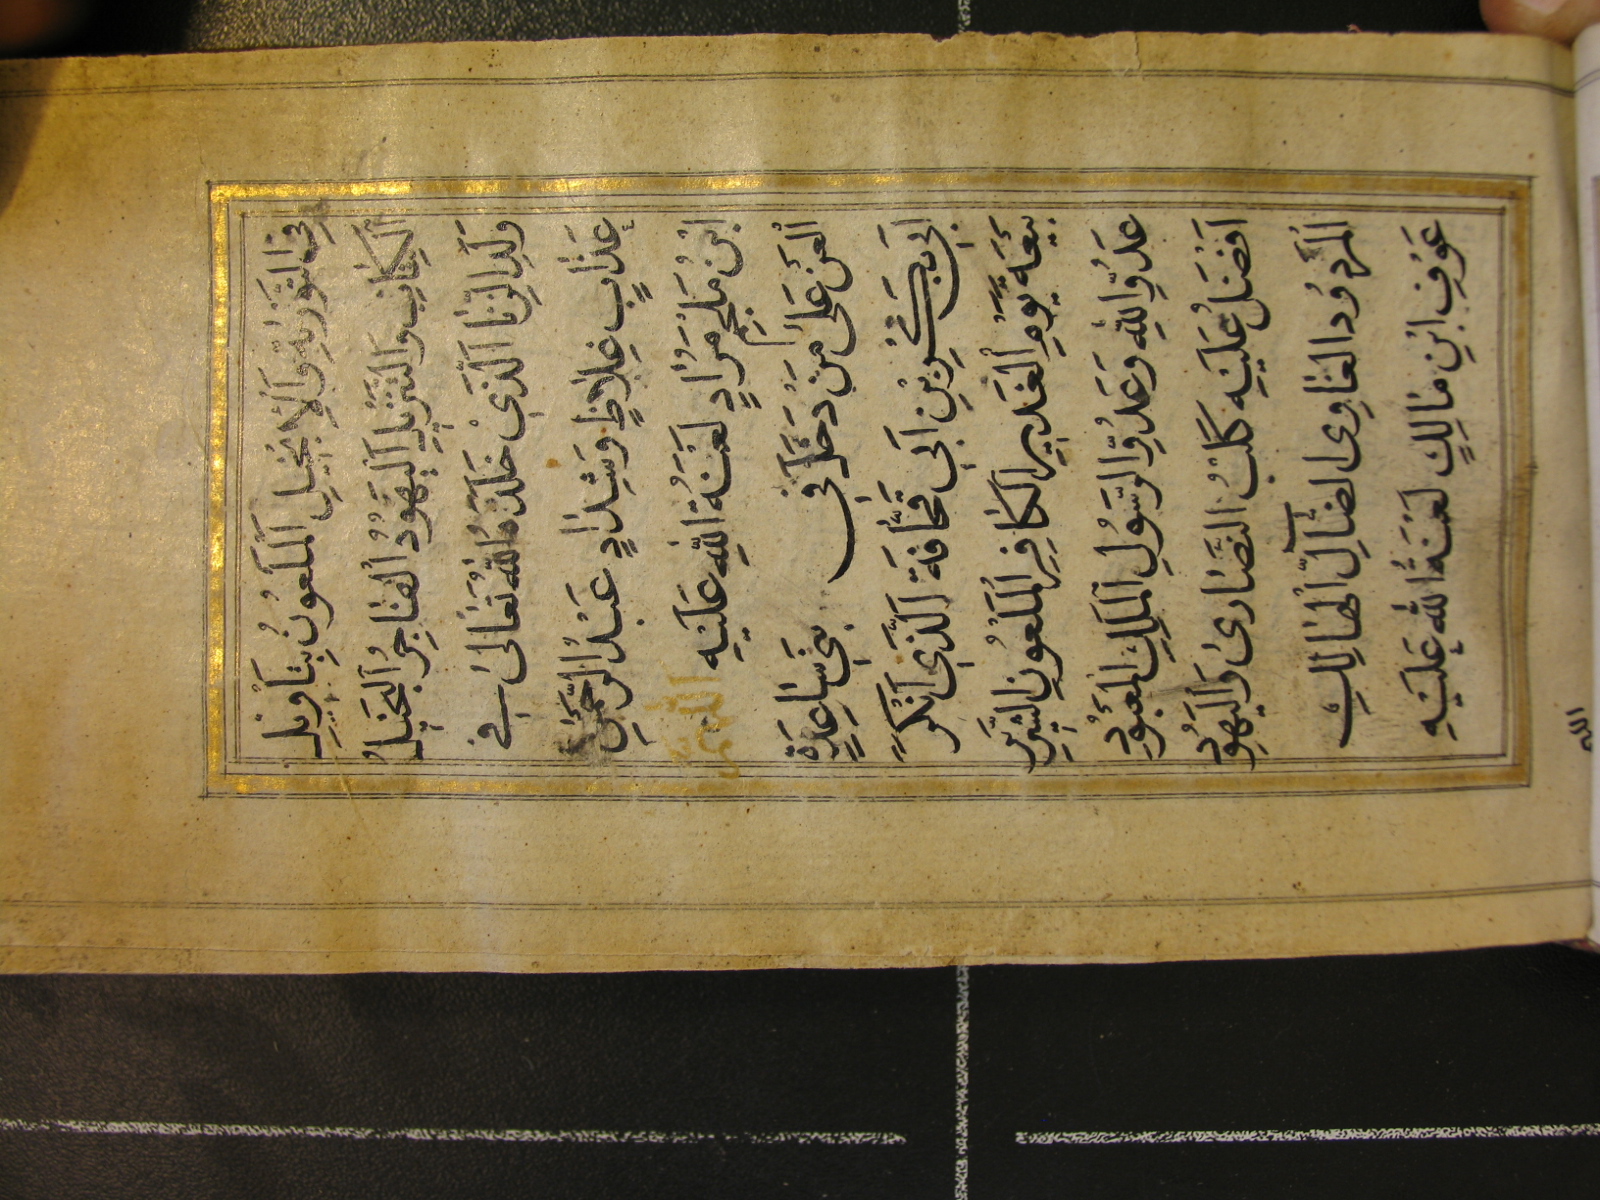 فِي التَّوْرٰيةِ وَالْاِنْجِيلِ الْمَلْعُونُ بِتَاْوِيلِ
الْكِتَابِ وَالتَّنْزِيلِ الْيَهُودُ الْفَاجِرُ الْبَخِيلُ
وَلَدِ الزِّنَا الَّذِي خَلَّدَهُ اللّٰهُ تَعَالٰى فِي
عَذَابٍ غِلَاظٍ وَشِدَادٍ عَبْدُ الرَّحْمٰنِ
ابْنِ مُلْجِمِ مُرَادٍ لَعْنَةُ اللّٰهِ عَلَيْهِ اللّٰهُمَّ
الْعَنْ عَلٰى مَنْ دَخَلَ فِي بَنِي سَاعِدَةَ
اَبِي بَكْرِ بْنِ اَبِي قُحَافَةَ الَّذِي اَنْكَرَ
بَيْعَةَ يَوْمِ الْغَدِيرِ الْكَافِرِ الْمَلْعُونِ الشَّرِيرِ
عَدُوِّ اللّٰهِ وَعَدُوِّ الرَّسُولِ الْمَلِكِ الْمَعْبُودِ
اَفْضَلُ عَلَيْهِ كَلْبُ النَّصَارٰى وَالْيَهُودِ
الْمَرْدُودِ الْغَاوِى الضَّالِّ الْهَالِكِ
عَوْفِ ابْنِ مَالِكٍ لَعْنَةُ اللّٰهِ عَلَيْهِ
الله